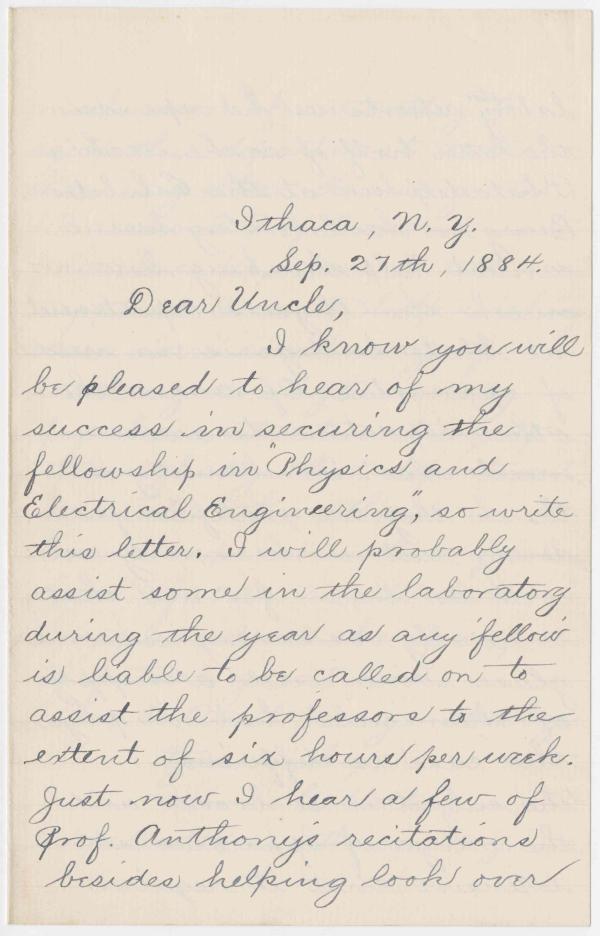 Ithaca, N. Y.
Sep. 27th, 1884.
Dear Uncle,
I know you will
be pleased to hear of my
success in securing the
fellowship in "Physics and
Electrical Engineering", so write
this letter. I will probably
assist some in the laboratory
during the year as any 'fellow'
is liable to be called on to
assist the professors to the
extent of six hours per week.
Just now I hear a few of
Prof. Anthony's recitations
besides helping look over